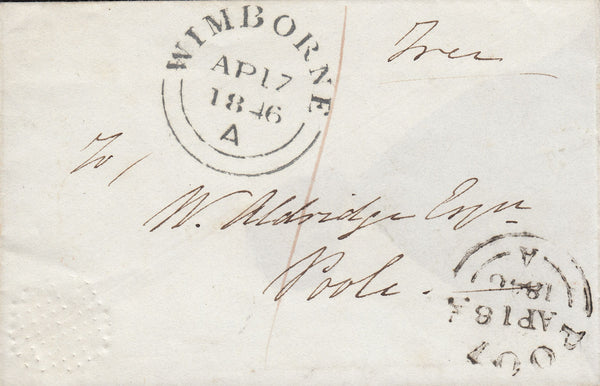 WIMBORNE
AP 17
1846
A
Free
To,
W. Aldridge Esqre
Poole.
POOLE
AP 18
1846
A